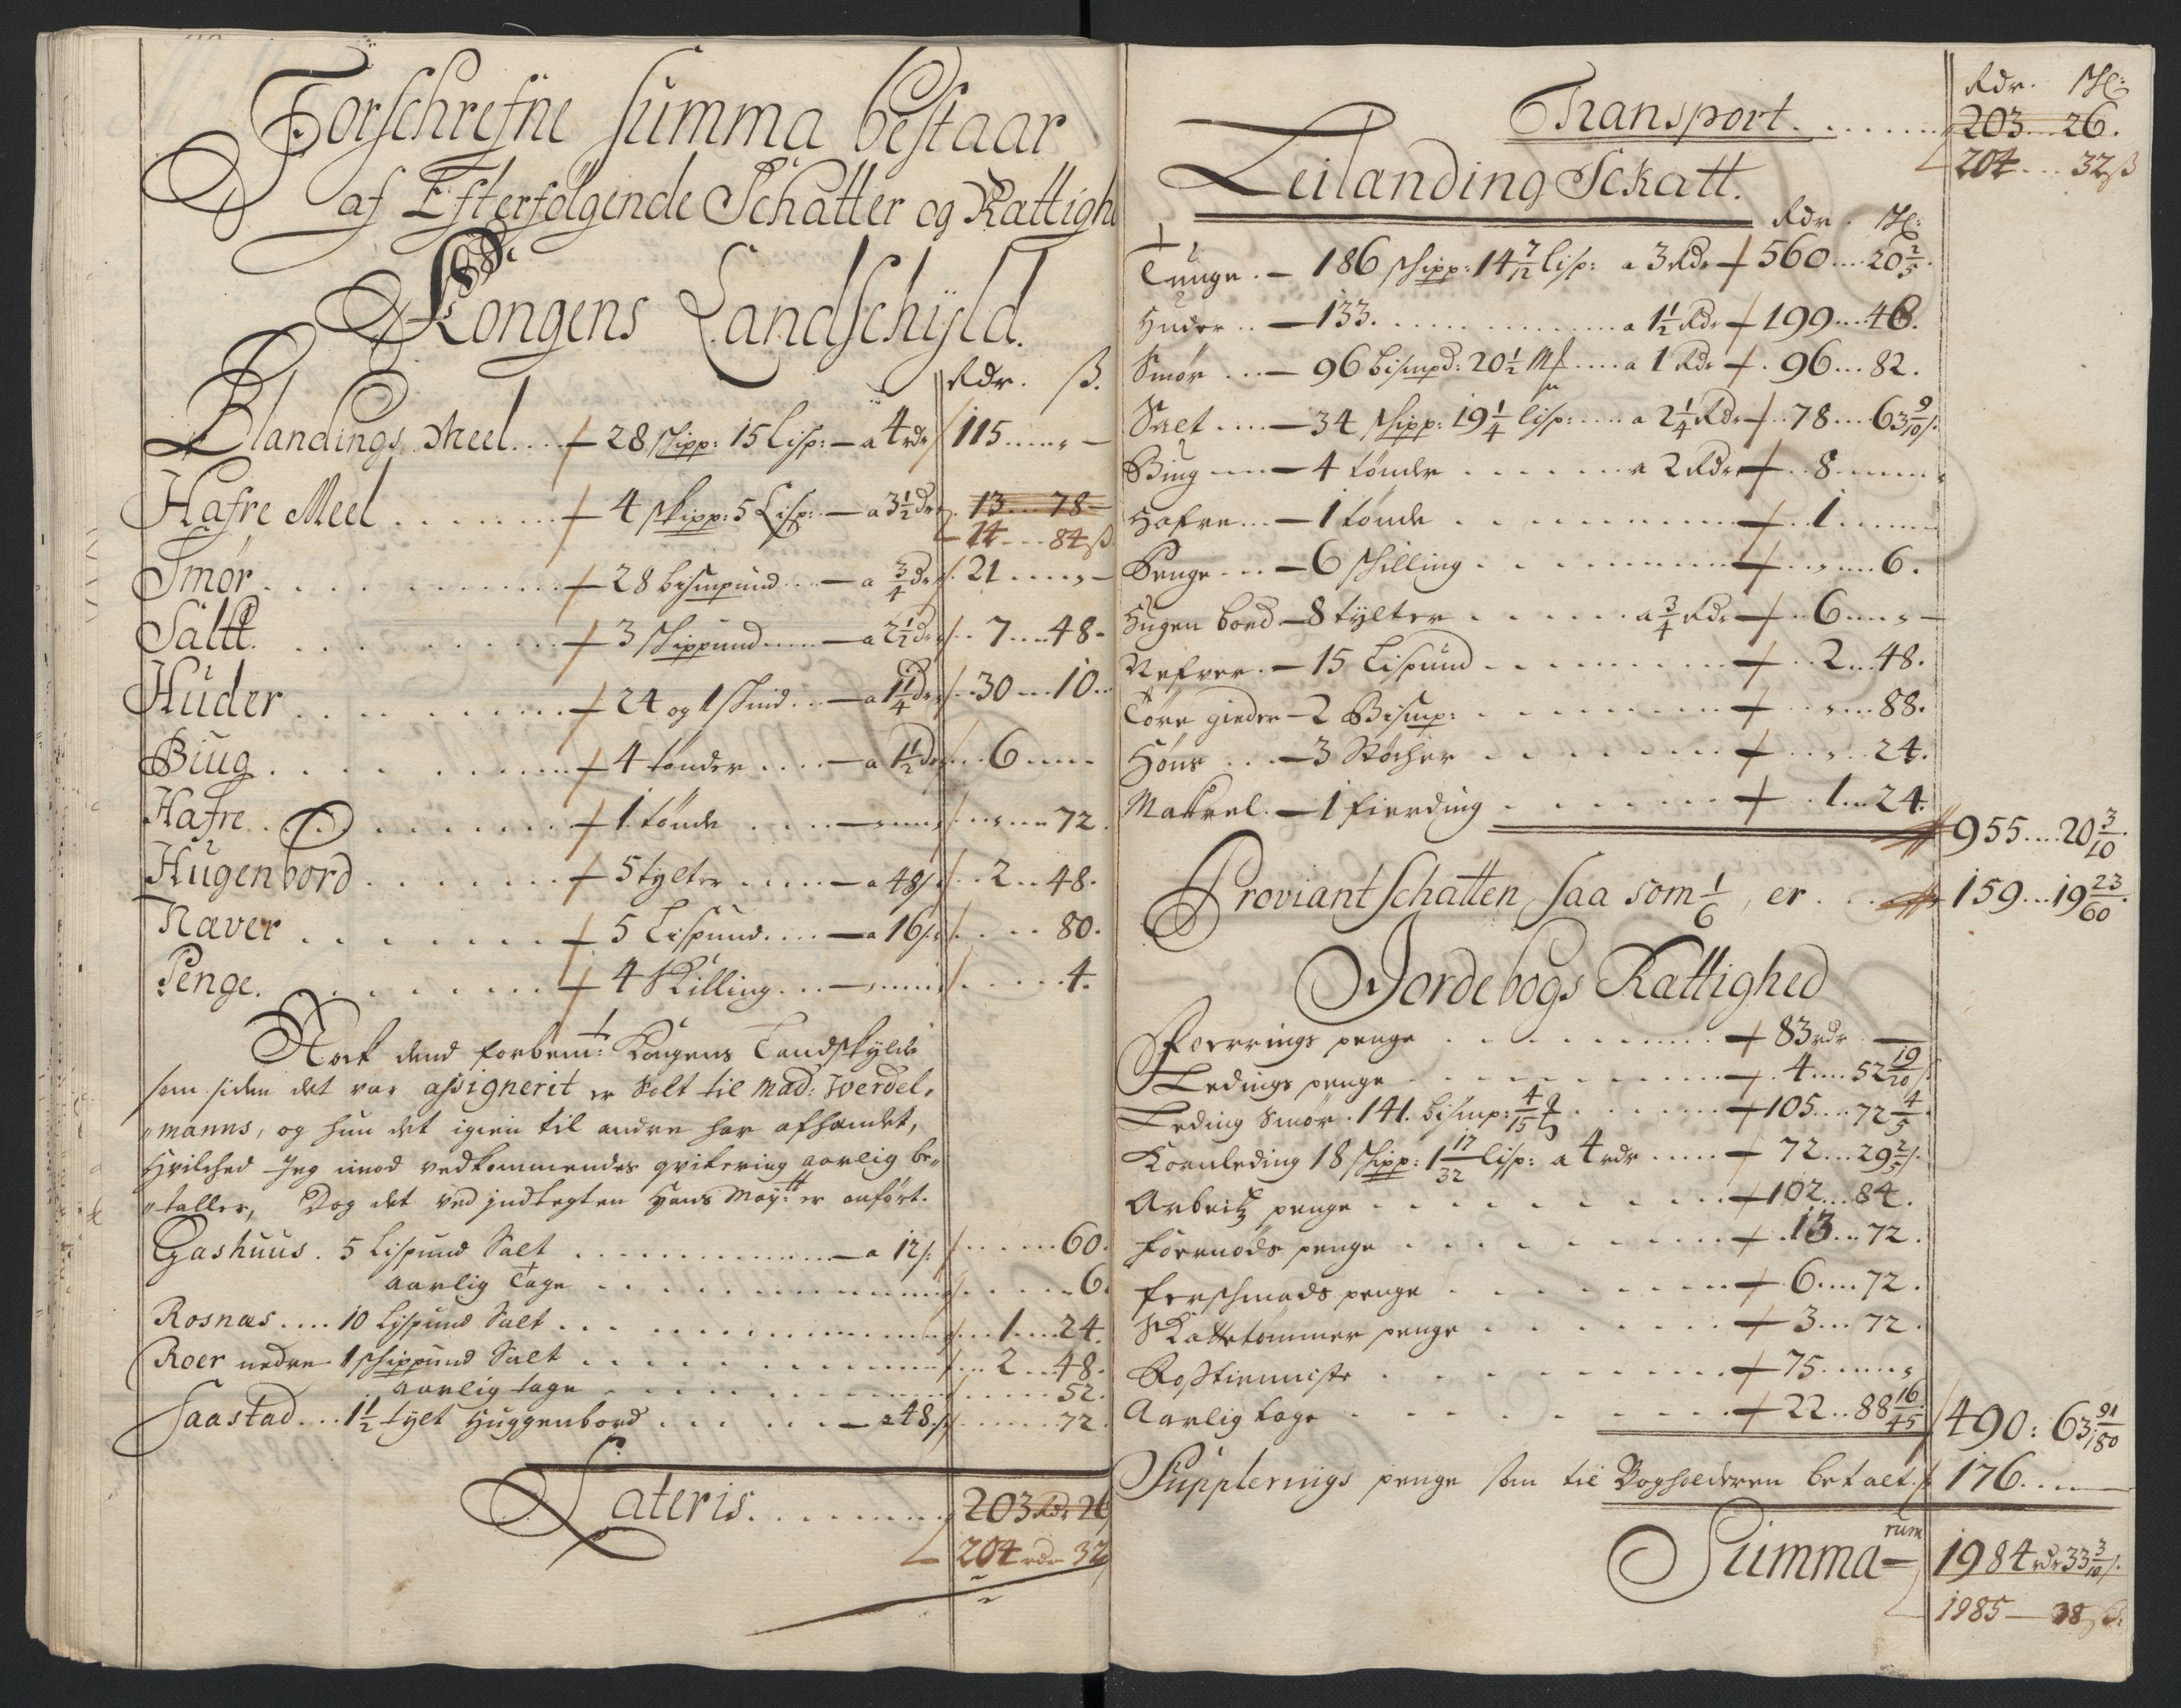 Forschrefne Summa bestaar
af Efterfølgende Schatter og Rattigh
Kongens Landschyld.
Rdr. ß.
Blandings Meel .... 28 schipp: 15 Lisp: — a 4 rdr 115 .... „ —
Hafre Meel ....... 4 skipp: 5 Lisp: — a 3½ dr 13 ... 78
14 ... 84 ß
Smør .......... 28 bismpund ... — a ¾ dr 21 .... „ —
Saltt .......... 3 skippund ..... — a 2½ dr 7 ... 48.
Huder .......... 24 og 1 skind ... — a 1¼ dr 30 ... 10..
Biug .......... 4 tønder .... — a 1½ dr 6 .....
Hafre .......... 1 tønde ..... „ ... 72.
Hugenbord ....... 5 tylter ..... — a 48 ß 2 .. 48.
Næver ....... 5 Lispund .... — a 16 ß ... 80.
Penge ....... 4 Skilling ... — ..... 4.
Nock dend forbem:t Kongens Landskylde
som siden det var assignerit er Solt til Mad: Werdel,
„manns, og hun det igien til andre har afhændet,
Hvilched Jeg imod vedkommendes qvitering aarlig be„
„taller, Dog det ved indtegten Hans May:tt er anført.
Gashuus . 5 Lispund Salt ....... — a 12 ß ..... 60.
aarlig Tage ....... 6.
Rosnæs .... 10 Lispund Salt ....... 1 ... 24.
Roer nedre 1 schippund Salt ....... 2 ... 48.
aarlig tage ....... 52.
Saastad ... 1½ tylt Huggenbord ...... — a 48 ß ..... 72.
Lateris ......... 203 Rdr 26
204 rdr 32
Rdr. ß:
Transport ....... 203 .. 26.
204 ... 32 ß
Leilanding Skatt.
Rdr. ß:
Tunge . — 186 schipp: 14 7/12 lisp: a 3 Rdr 560 ... 20 2/5.
Huder .. — 133 ............ a 1½ Rdr 199 ... 48.
Smør ... — 96 bismpd: 20½ m[k] .... a 1 Rdr . 96 ... 82.
Salt .... — 34 schipp: 19¼ lisp: .... a 2¼ Rdr .. 78 ... 63 9/10 ß.
Biug ... — 4 tønder ...... a 2 Rdr .. 8 .....
Hafre ... — 1 tønde .......... .. 1 ......
Penge ... — 6 skilling ......... .. „ ... 6.
Hugen bord — 8 tylter ..... a ¾ Rdr .. 6 ... „ —
Nefver . — 15 Lispund ....... .. 2 .. 48.
Tøre gieder — 2 Bismp: ....... .. „ ... 88.
Høns ... — 3 Støcher ...... .. „ .. 24.
Makrel . — 1 fierding ...... .. 1 ... 24.
955 .... 20 3/10.
Proviant Schatten saa som 1/6, er ... 159 ... 19 23/60.
Jordebogs Rattighed
Foerrings penge ......... 83 rdr —
Ledings penge ......... 4 .... 52 19/20 ß
Leding Smør . 141. bismp: 4/15 ℔ ...... 105 ... 72 4/5.
Kornleding 18 schipp: 1 17/32 lisp: a 4 rdr ..... 72 ... 29 2/5 ß.
Arbeitz penge ......... 102 ... 84.
foernøds penge ......... 13 ... 72.
ferschmads penge ........ 6 ... 72.
Skattetømmer penge ....... 3 ... 72.
Rosstienniste ......... 75 ..... „
Aarlig tage ......... 22 .. 88 16/45 490: 63 91/180
Supplerings penge som til Fogholderen betalt. 176 .... —
Summa rum — 1984 rdr 33 3/10 ß.
1985 — 38 ß.